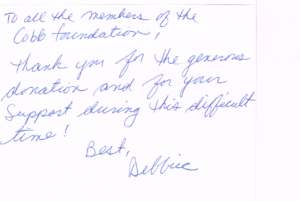 To all the members of the
Cobb Foundation,
Thank you for the generous
donation and for your
support during this difficult
time!
Best,
Debbie